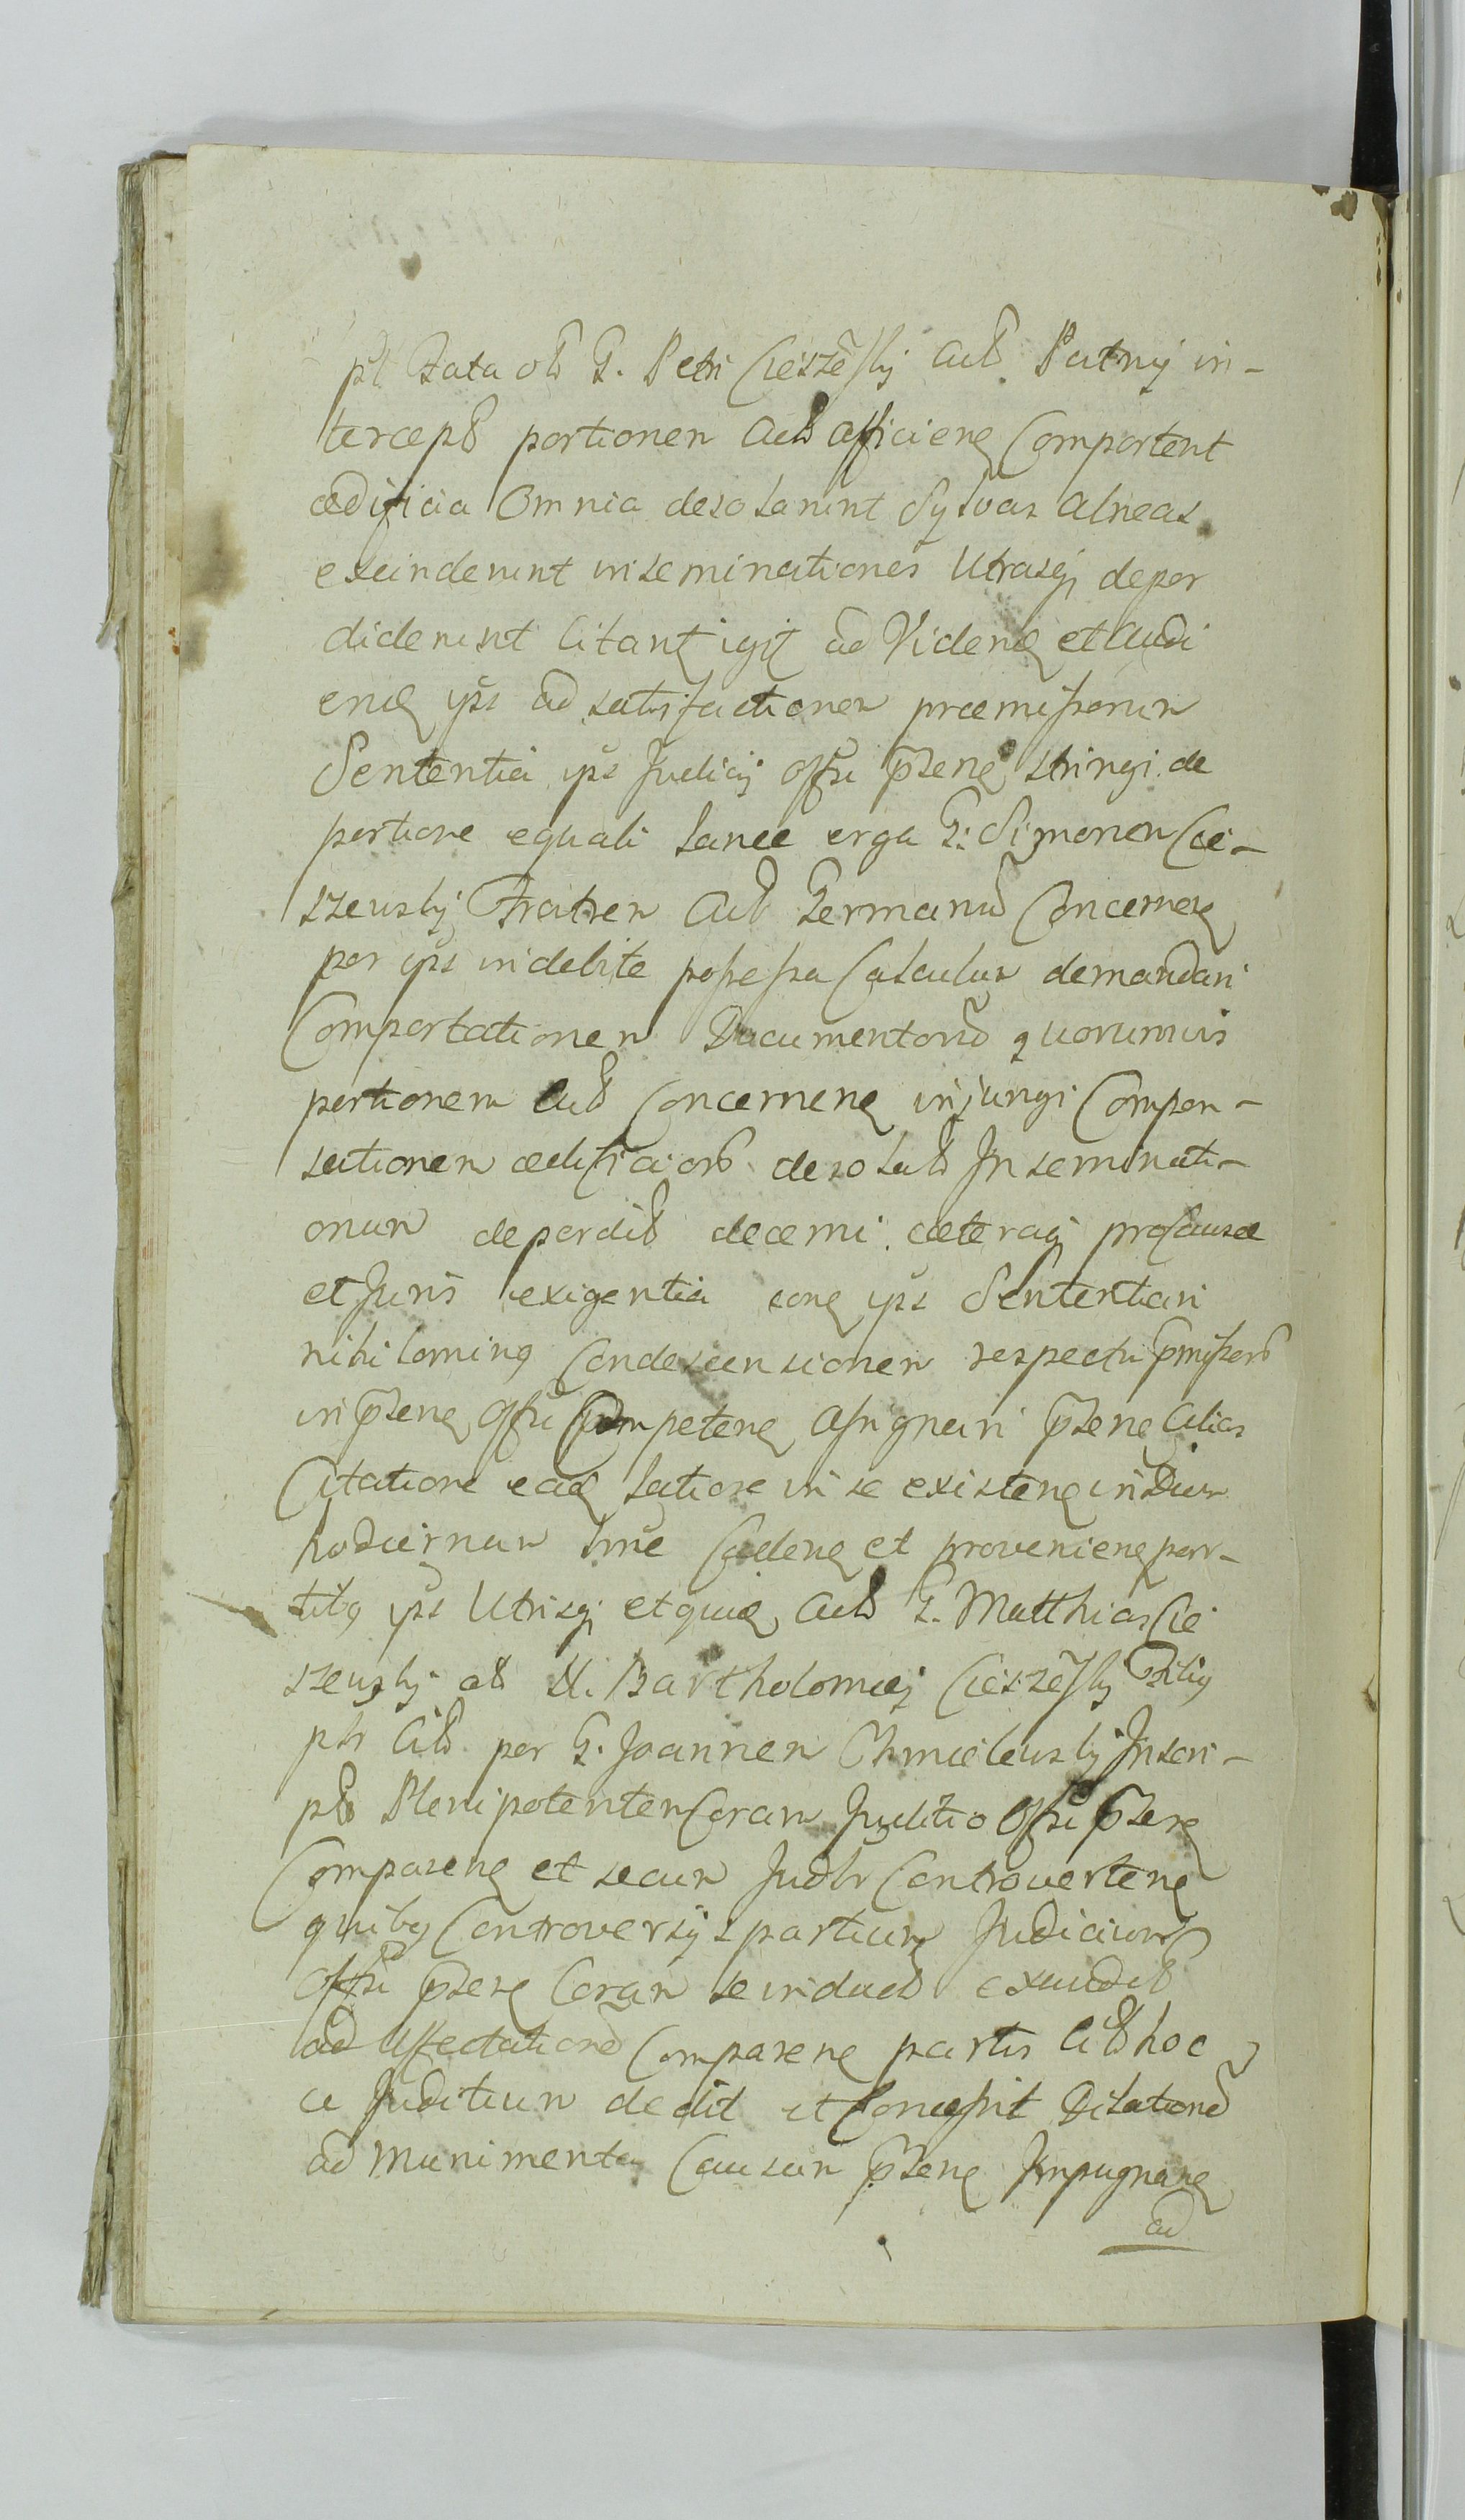 pt Fata ols G. Petri Cieszēsky Actŝ Patruj in-
tercepŝ portionem Actŝ afficienē Comportent
ædificia Omnia desolarunt Sylvas alneas
exciderunt inseminationes Utrasqj deper
diderunt Citantꝫ igiꝫ ad Videnꝫ et Audi
enꝫ ip̄s ad satisfactionem præmissorum
Sententia ip̄s Judicij Offiī p̄senꝫ stringi de
portione equali lance erga G: Simonem Cie-
szewsky Fratrem Actŝ Germanū Concernenꝫ
per ip̄s indebite possessa Calculum demandari
Comportationem Documentorū quorumvis
portionem Actŝ Concernenꝫ injungi Compen-
sationem ædificiorŝ desolatŝ Inseminati-
onum deperditŝ decerni cæteraqj pro causæ
et Juris exigentia conꝫ ip̄s Sententiari
nihilominꝫ Condescensionem respectu p̄missorŝ
in p̄senꝫ Offiī Competenꝫ Assignari p̄senꝫ alias
Citatione eadꝫ latiore in se existenꝫ in Diem
hodiernum hm̄e Cadenꝫ et provenienꝫ par-
tibꝫ ip̄s Utrisqj et quidꝫ Actŝ G. Matthias Cie
szewsky ols M. Bartholomæj Cieszēsky Filiꝫ
ptr Citŝ per G. Joannem Chmielewsky Inscri-
ptŝ Plenipotentem Coram Juditio Offiī p̄senꝫ
Comparenꝫ et secum Judlr Controvertenꝫ
quibꝫ Controversijs partium Judicium
Offiī p̄senꝫ Coram se inductŝ exauditŝ
ad Affectationē Comparenꝫ partis Citŝ hoc
ce Juditium dedit et Concessit Dilationē
ad Munimenta Causam p̄senꝫ Impugnanꝫ
ad